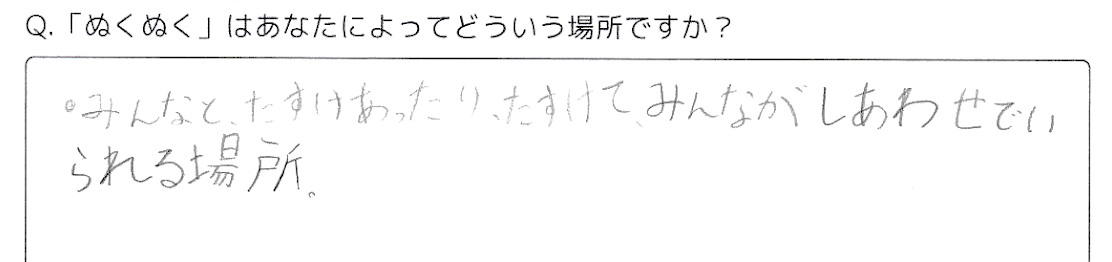 Q.「ぬくぬく」はあなたによってどういう場所ですか？
。みんなと、たすけあったり、たすけて、みんながしあわせでい
られる場所。